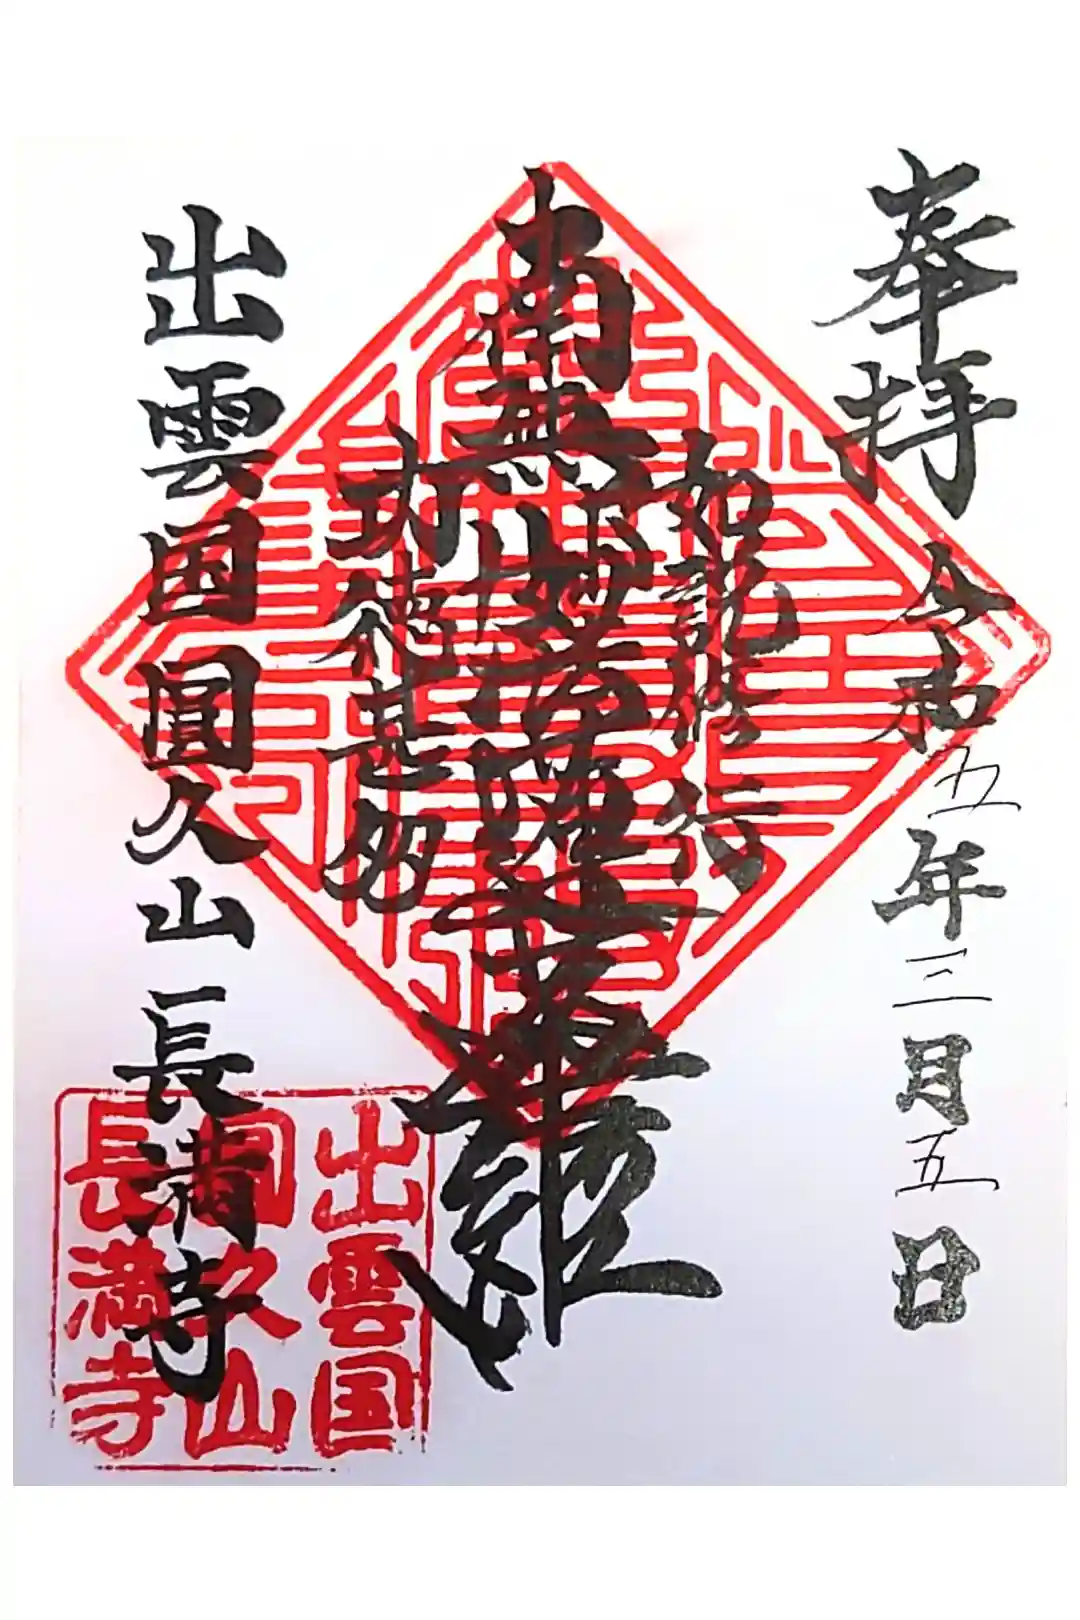 奉拝 令和五年三月五日
如説修行
南無妙法蓮華経
功徳甚多
出雲国圓久山長満寺
出雲国
圓久山
長満寺